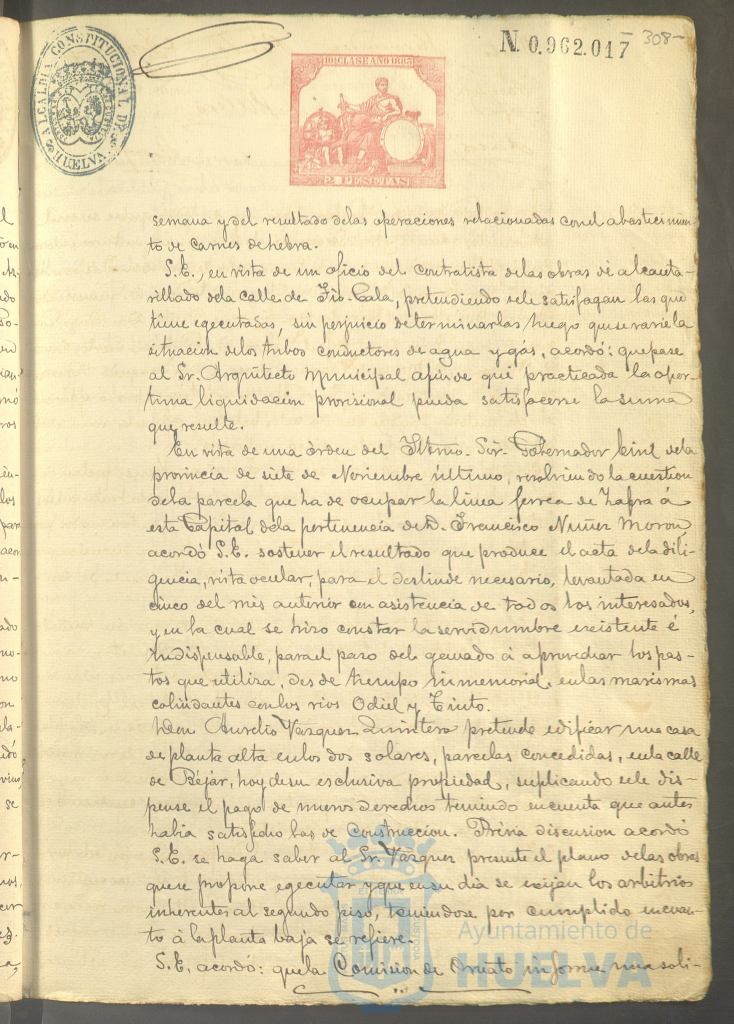 N. 0.962.017
308-
ALCALDIA CONSTITUCIONAL DE HUELVA
10ª CLASE AÑO 1887
2 PESETAS
semana y del resultado delas operaciones relacionadas conel abastecimien-
to de carnes dehebra.
S.E., en vista de un oficio del contratista delas obras de alcanta-
rillado dela calle de Fco. Cala, pretendiendo sele satisfagan las que
tiene egecutadas, sin perjuicio determinarlas luego quese varie la
situacion delos tubos conductores de agua y gás, acordó: que pase
al Sr. Arquitecto Municipal afin de que practicada la opor-
tuna liquidacion provisional pueda satisfacerse la suma
que resulte.
En vista de una órden del Iltmo. Sör. Gobernador Civil dela
provincia de siete de Noviembre último, resolviendo la cuestion
dela parcela que ha de ocupar la linea ferrea de Zafra á
esta Capital dela pertenencia de D. Francisco Nuñez Moron,
acordó S.E. sostener el resultado que produce el acta dela dili-
gencia, vista ocular, para el deslinde necesario, levantada en
cinco del mes anterior con asistencia de todos los interesados,
y en la cual se hizo constar la servidumbre existente é
indispensable, para el paso del ganado á aprovechar los pas-
tos que utiliza, desde tiempo inmemorial, enlas marismas
colindantes conlos rios Odiel y Tinto.
Don Aurelio Vazquez Quintero pretende edificar una casa
de planta alta enlos dos solares, parcelas concedidas, enla calle
de Béjar, hoy desu esclusiva propiedad, suplicando sele dis-
pense el pago de nuevos derechos teniendo encuenta que antes
habia satisfecho los de Construccion. Prévia discusion acordó
S.E. se haga saber al Sr. Vazquez presente el plano delas obras
quese propone egecutar y que en su dia se exijan los arbitrios
inherentes al segundo piso, teniendose por cumplido encuan-
to á la planta baja se refiere.
S.E. acordó: quela Comision de Ornato informe una soli-
Ayuntamiento de
HUELVA